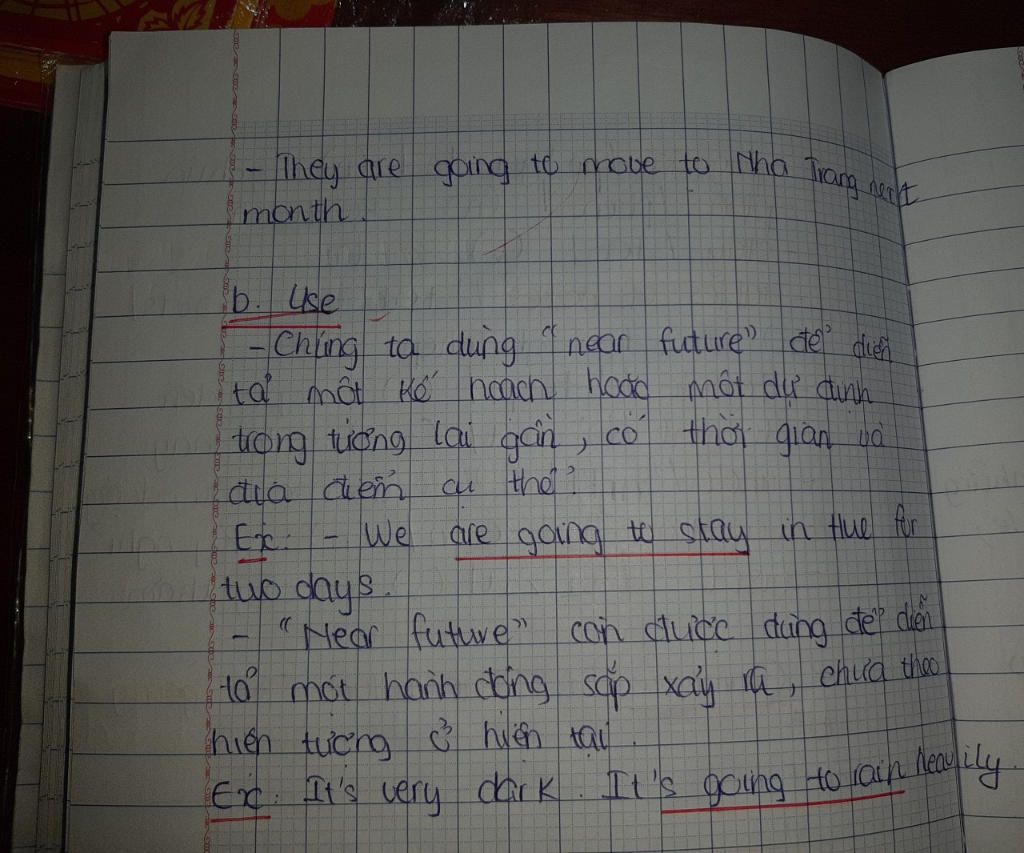 - They are going to move to Nha Trang next
month.
b. Use
- Chúng ta dùng "near future" để diễn
tả một kế hoạch hoặc một dự định
trong tương lai gần, có thời gian và
địa điểm cụ thể.
Ex: - We are going to stay in Hue for
two days.
- "Near future" còn được dùng để diễn
tả một hành động sắp xảy ra, chưa theo
hiện tượng ở hiện tại.
Ex: It's very dark. It's going to rain heavily.